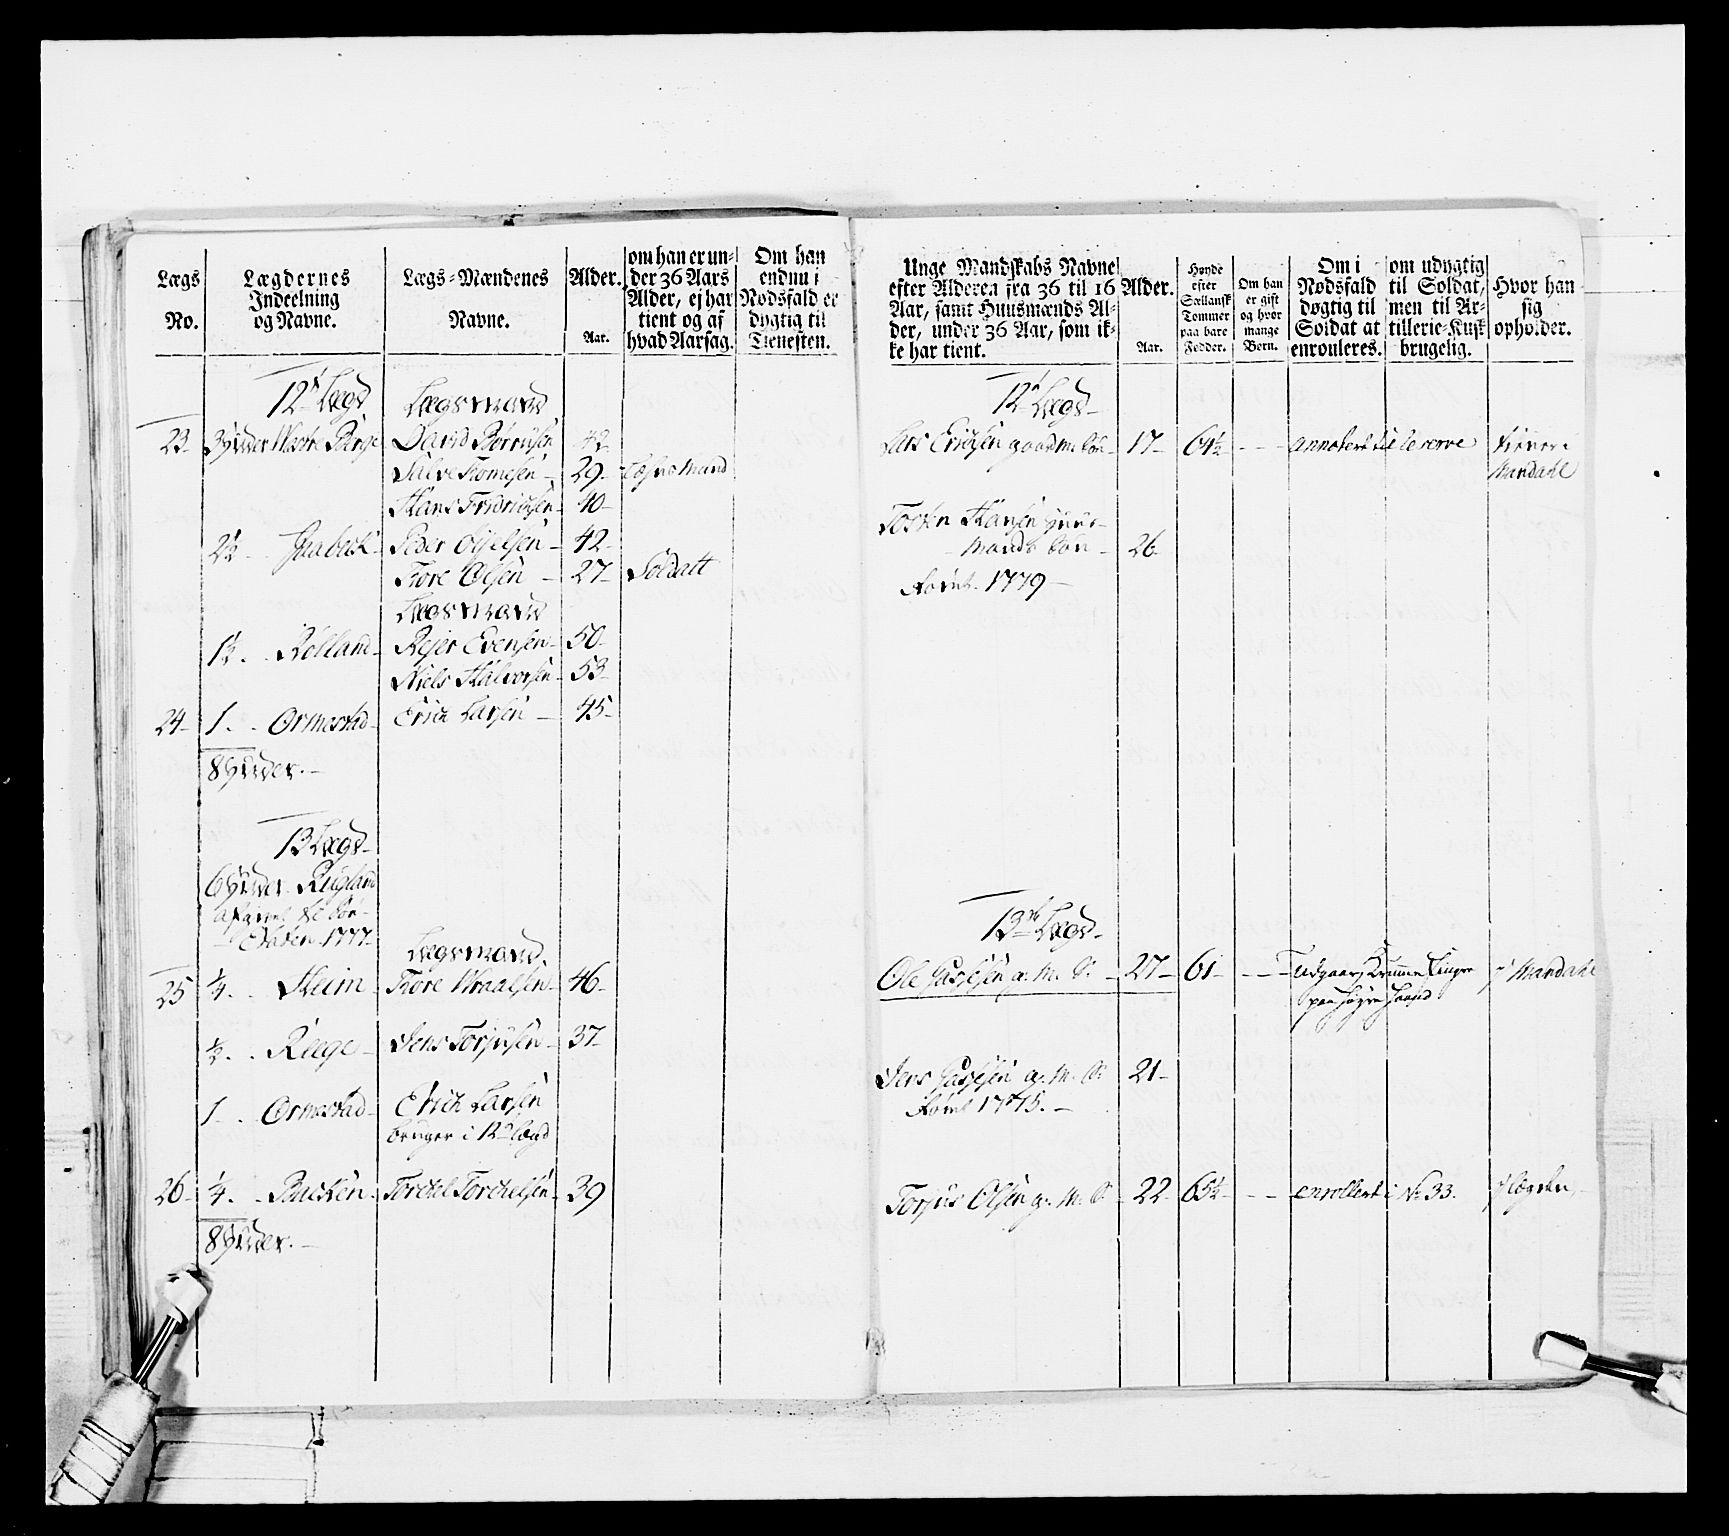 Lægs
No.
Lægdernes
Indeelning
og Navne.
Lægs-Mændenes
Navne.
Alder.
Aar.
om han er un-
der 36 Aars
Alder, ej har
tient og af
hvad Aarsag.
Om han
endnu i
Nødsfald er
dygtig til
Tienesten.
12te Lægd
Lægsmand
23 3 Hudes Berge David 42
Salve Tomesen 29
Hans Fridrichsen 40
2½ Peder 42
Tore Olsen 27 Soldatt
Lægsmand
1½ Rølland Rejer Evensen 50
Niels Halvorsen 53
24 1 Ormestad Erich Larsen 45
8 Huder.
13 Lægd
6 Huder Rugland
1777
Lægsmand
25 ¼ Heim Tore 46
½ Reege Jens Torjusen 37
1 Ormestad Erich Larsen
bruger i 12te Lægd
26 ¼ Backen Torchel Torchelsen 39
8 Huder.
Unge Mandskabs Navne
efter Alderen fra 36 til 16
Aar, samt Huusmænds Al-
der, under 36 Aar, som ik-
ke har tient.
Alder.
Aar.
Høyde
efter
Sællansk
Tommer
paa bare
Fødder.
Om han
er gift
og hvor
mange
Børn.
Om i
Nødsfald
dygtig til
Soldat at
enrouleres.
om udygtig
til Soldat,
men til Ar-
tillerie-Kusk
brugelig.
Hvor han
sig
opholder.
12te Lægd
Lars Erichsen 17 64½ - - annotert til Reserve
Mandahl
Hansen Huus-
Mands Søn 26
1779
13de Lægd
Ole g. M. S. 27 61 - - Udgaar, Krumme Finger i Mandahl
paa høyre Haand
Jens g. M. S. 21
1775.
Torjus Olsen g. M. S. 22 65½ - - enrollert i No 33. i Lægden